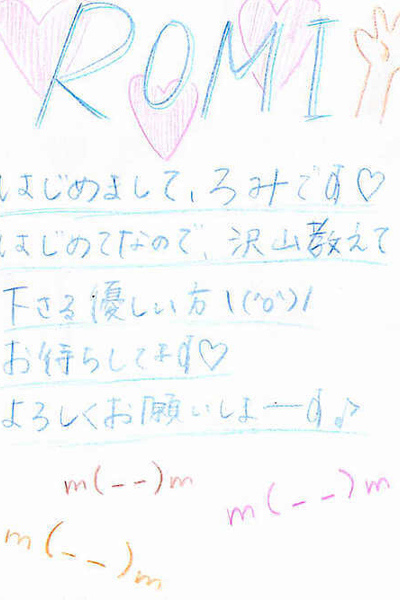 ROMI
はじめまして、ろみです♡
はじめてなので、沢山教えて
下さる優しい方\(^o^)/
お待ちしてます♡
よろしくお願いしまーす♪
m(--)m
m(--)m
m(--)m